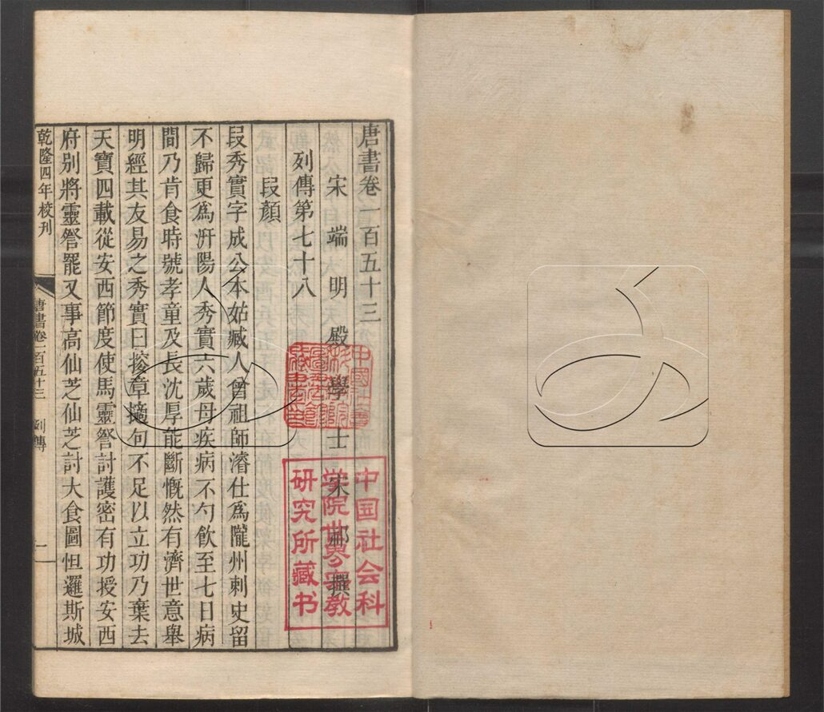 唐書卷一百五十三
宋端明殿學士宋祁撰
列傳第七十八
段顏
段秀實字成公本姑臧人曾祖師濬仕爲隴州刺史留
不歸更爲汧陽人秀實六歲母疾病不勺飲至七日病
間乃肯食時號孝童及長沈厚能斷慨然有濟世意舉
明經其友易之秀實曰搜章擿句不足以立功乃棄去
天寶四載從安西節度使馬靈詧討護密有功授安西
府別將靈詧罷又事高仙芝仙芝討大食圍怛邏斯城
乾隆四年校刊
唐書卷一百五十三 列傳
一
中国社会科
学院世界宗教
研究所藏书